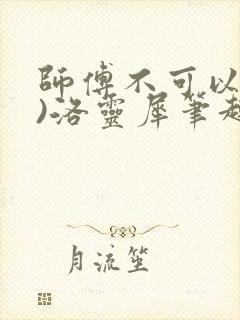 師傅不可以
)洛靈犀筆趣
月流笙